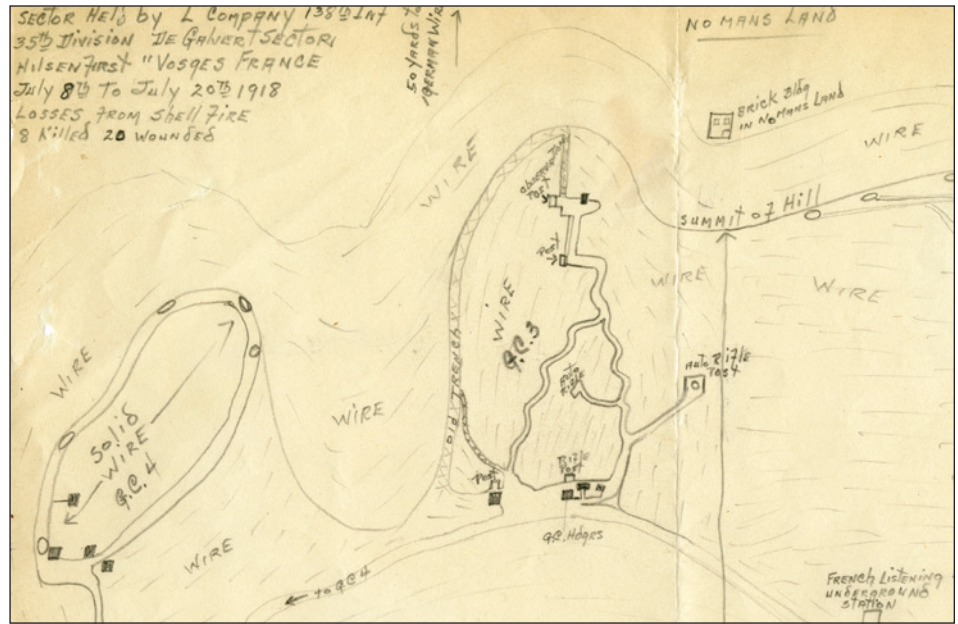 SECTOR HELD by L COMPANY 138th Inf
35th Division DE GALVERT SECTOR
HILSENFIRST "VOSGES FRANCE
July 8th To July 20th 1918
LOSSES FROM Shell FIRE
8 Killed 20 WOUNDED
50 YARDS To
GERMAN WIRE
NO MANS LAND
BRICK Bldg
IN NO MANS LAND
WIRE
WIRE
OBSERVATION
POST
SUMMIT of Hill
POST
WIRE
WIRE
WIRE
G.C.3
AUTO RIFLE
POST
AUTO
RIFLE
WIRE
WIRE
old TRENCH
SOLID
WIRE
G.C.4
POST
RIFLE
POST
G.C. Hdqrs
WIRE
to GC 4
FRENCH LISTENING
UNDERGROUND
STATION